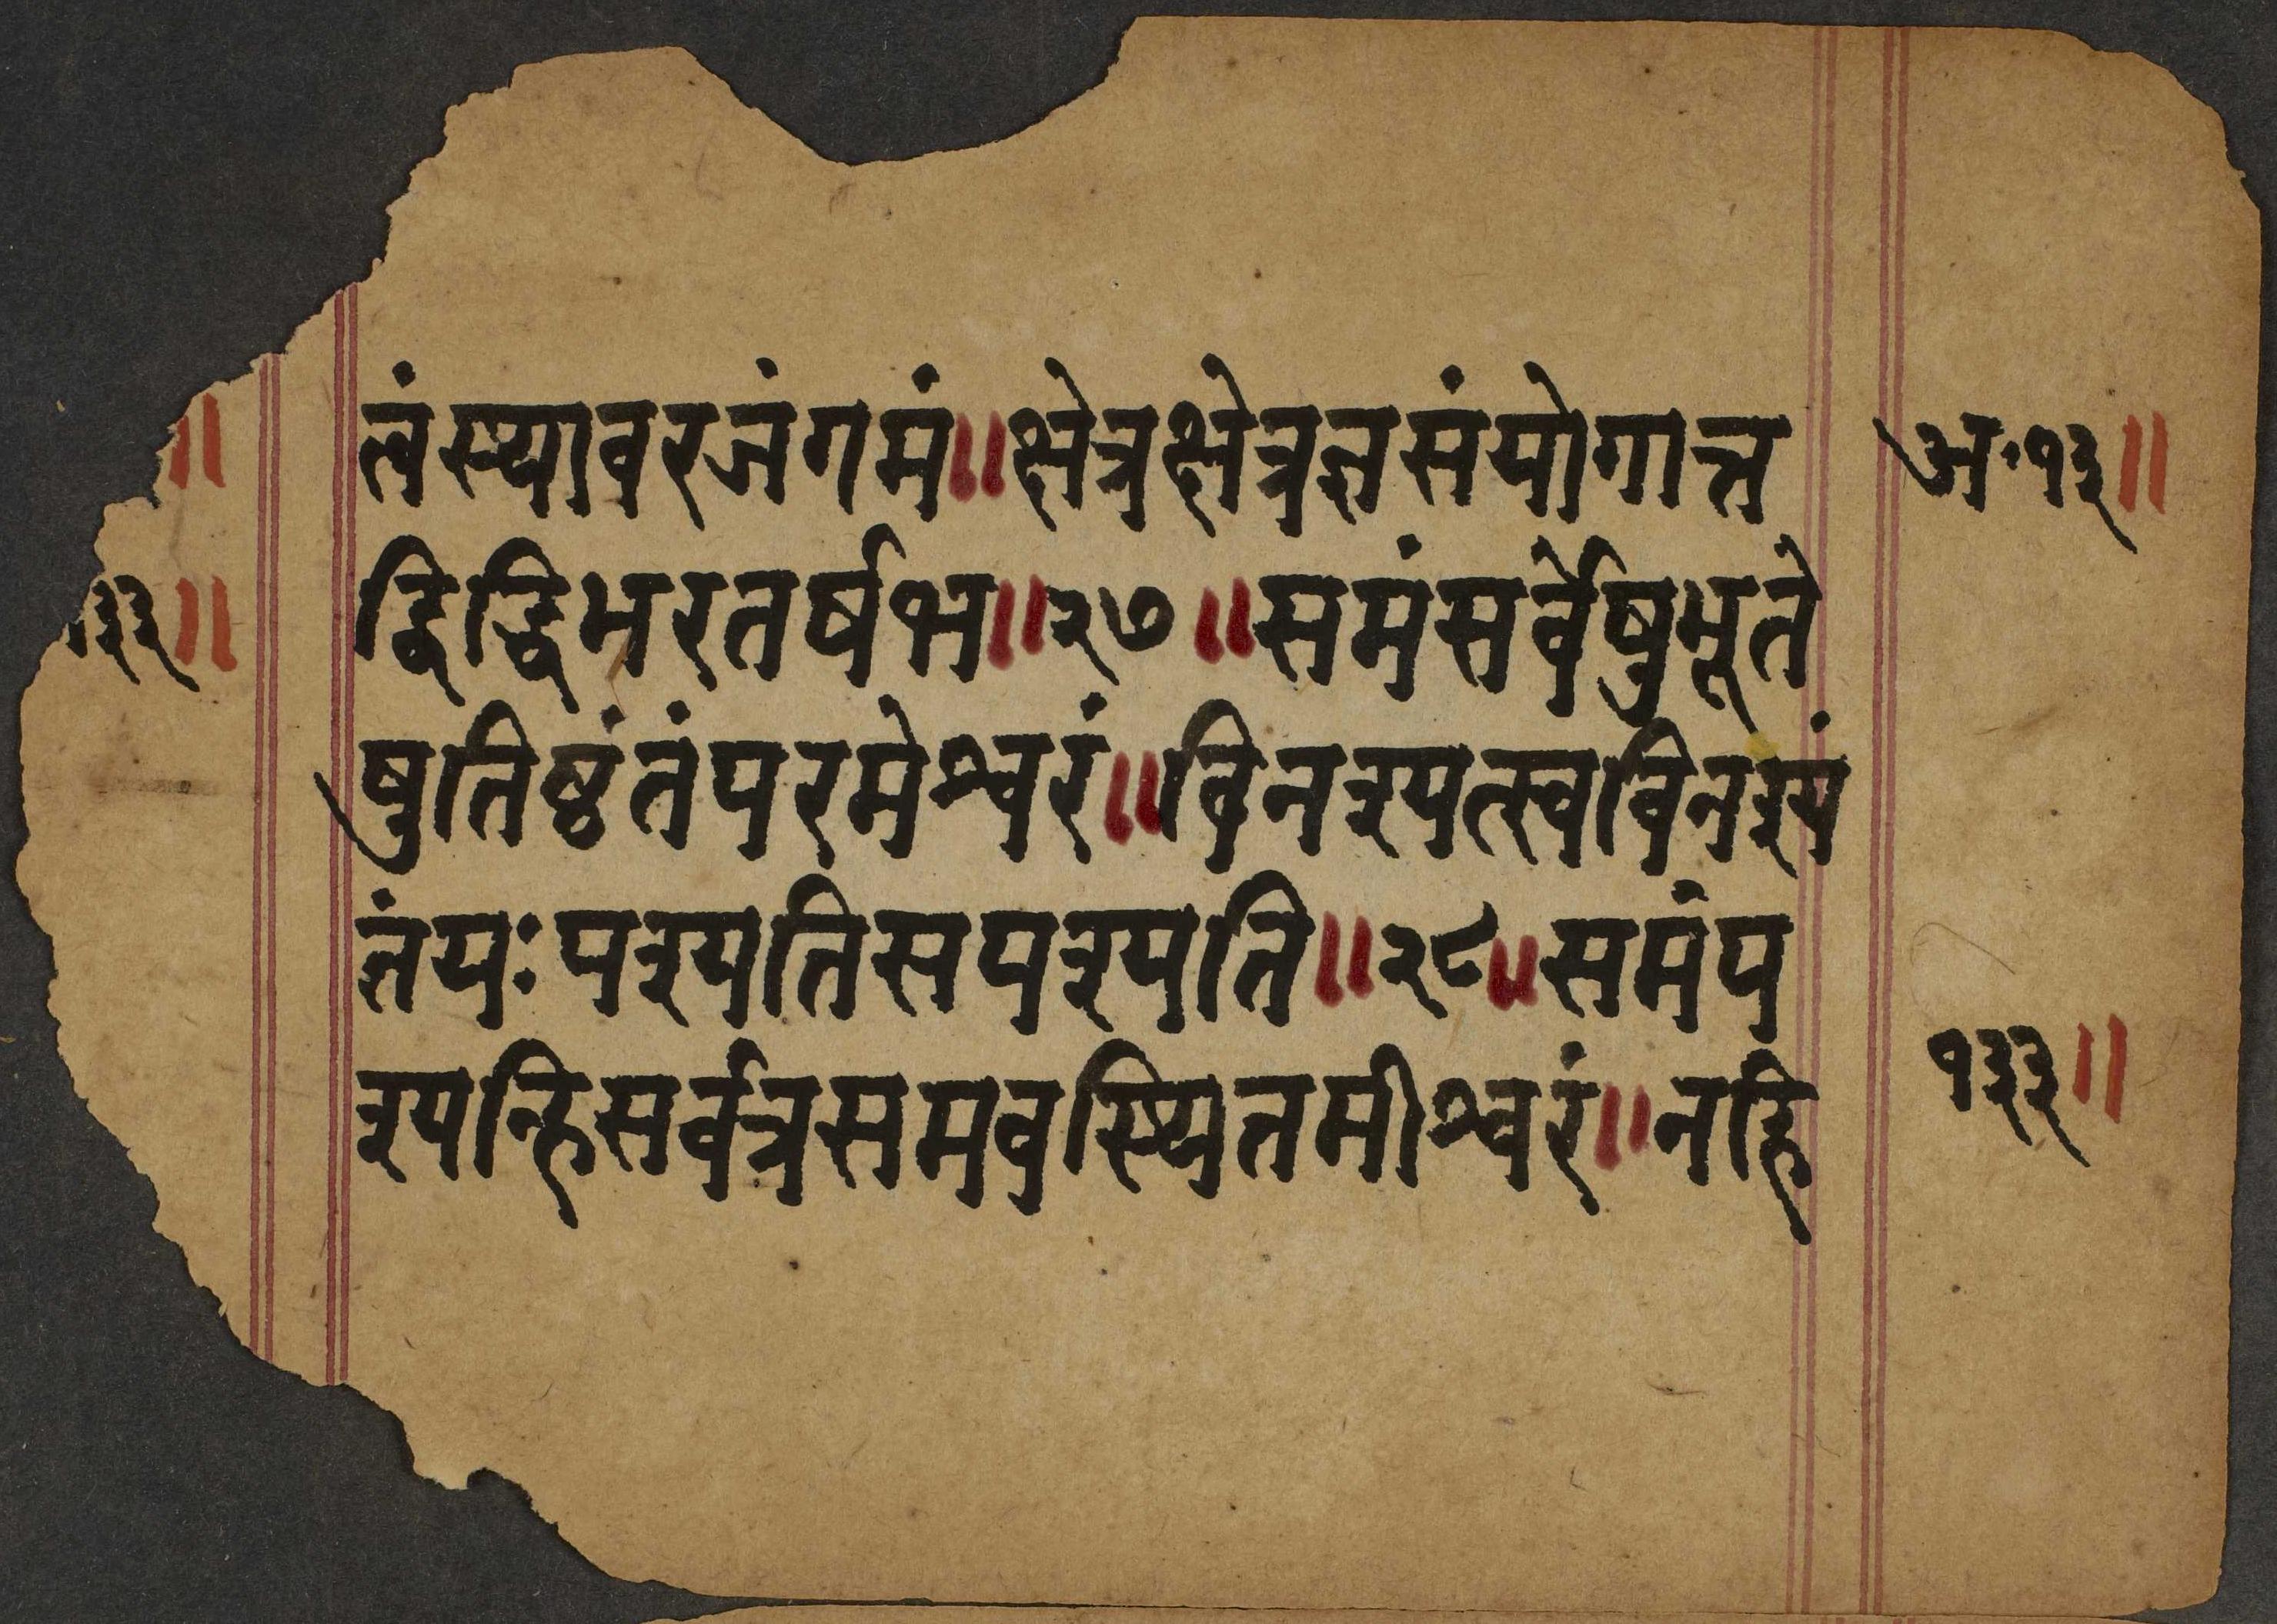 त्वंस्थावरजंगमं॥क्षेत्रक्षेत्रज्ञसंयोगात्त
द्विद्धिभरतर्षभ॥२७॥समंसर्वेषुभूते
षुतिष्ठंतंपरमेश्वरं॥विनश्यत्स्वविनश्यं
तंयःपश्यतिसपश्यति॥२८॥समंप
श्यन्हिसर्वत्रसमवस्थितमीश्वरं॥नहि
अ॰१३॥
१३३॥
॥
३३॥